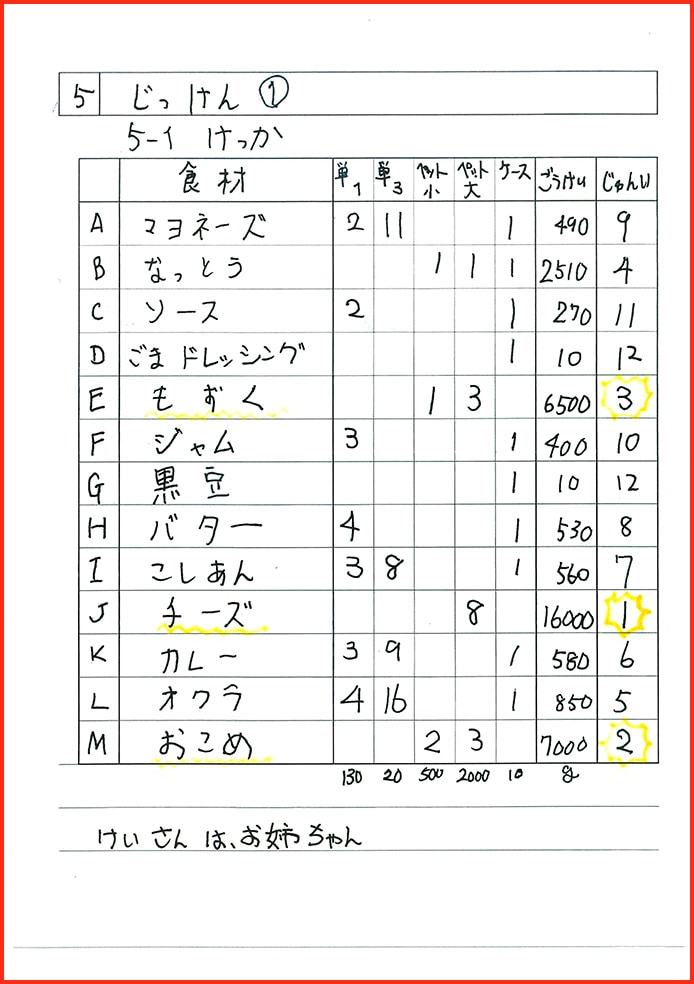 5 じっけん ①
5-1 けっか
食材 単1 単3 ペット小 ペット大 ケース ごうけい じゅんい
A マヨネーズ 2 11 1 490 9
B なっとう 1 1 1 2510 4
C ソース 2 1 270 11
D ごまドレッシング 1 10 12
E もずく 1 3 6500 3
F ジャム 3 1 400 10
G 黒豆 1 10 12
H バター 4 1 530 8
I こしあん 3 8 1 560 7
J チーズ 8 16000 1
K カレー 3 9 1 580 6
L オクラ 4 16 1 850 5
M おこめ 2 3 7000 2
130 20 500 2000 10 g
けいさんは、お姉ちゃん